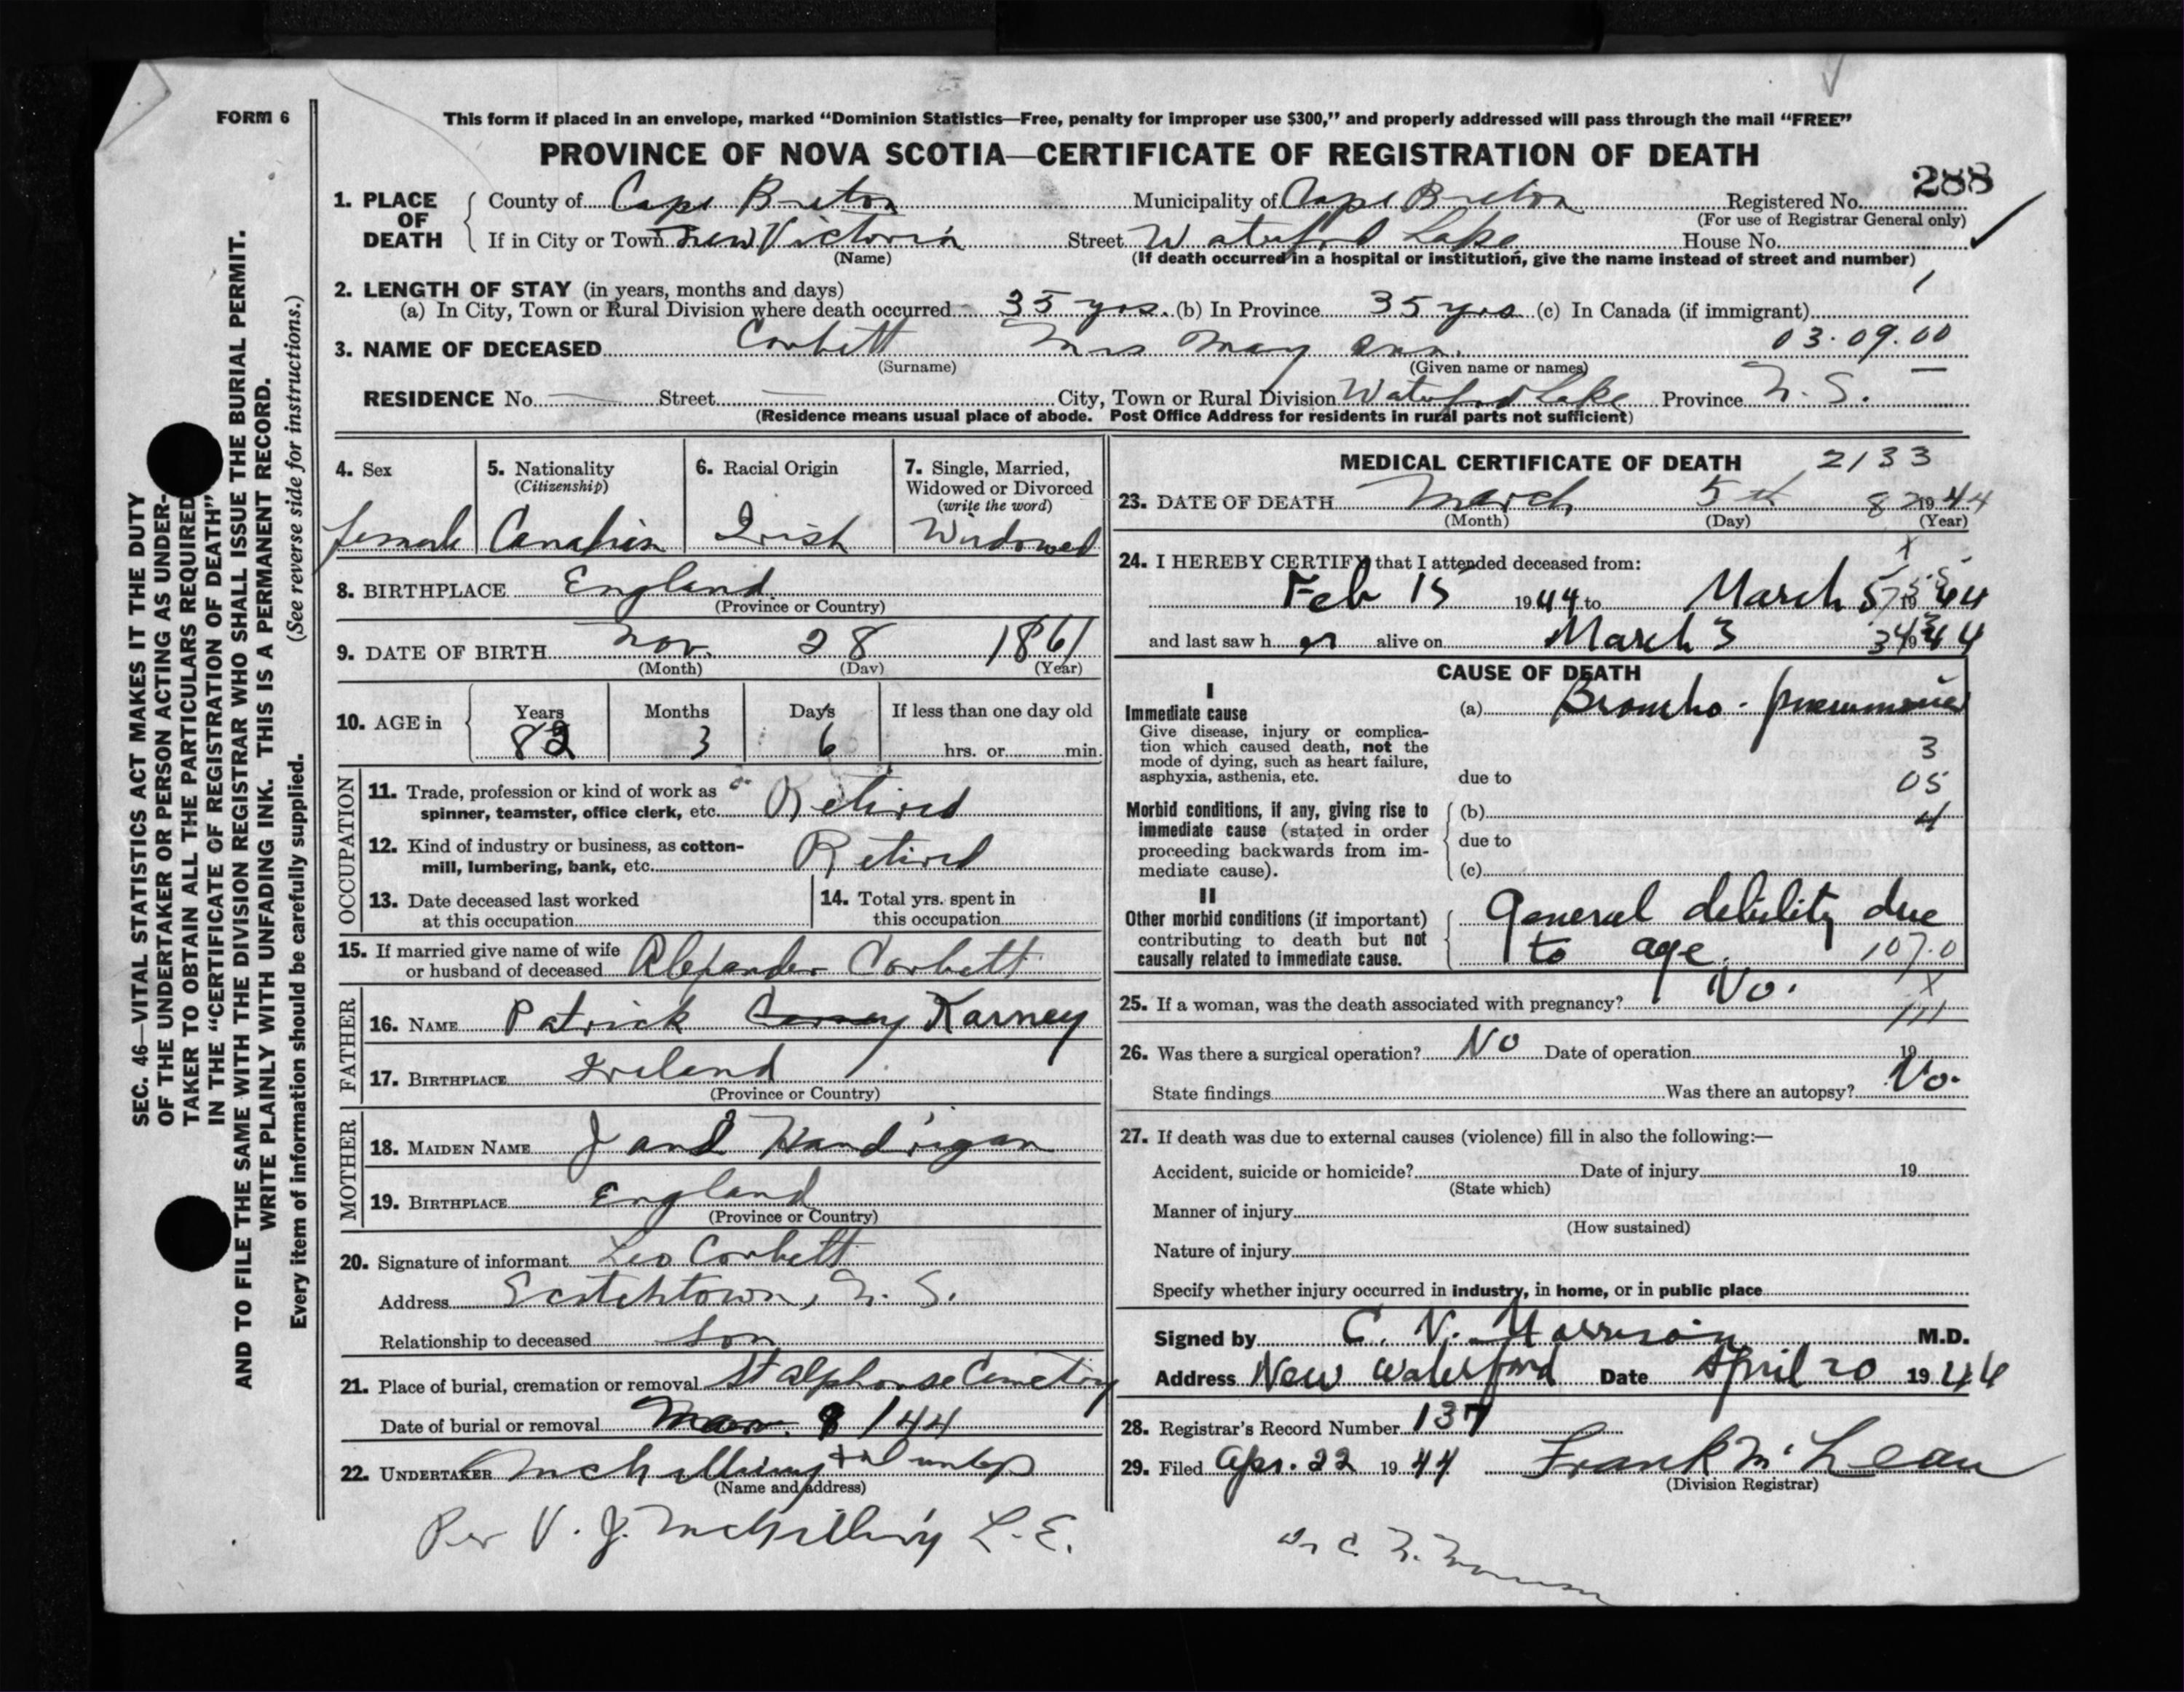 FORM 6
This form if placed in an envelope, marked “Dominion Statistics—Free, penalty for improper use $300,” and properly addressed will pass through the mail “FREE”
PROVINCE OF NOVA SCOTIA—CERTIFICATE OF REGISTRATION OF DEATH
288
1. PLACE OF DEATH County of Cape Breton Municipality of Cape Breton Registered No.
(For use of Registrar General only)
If in City or Town New Victoria Street Waterford Lake House No.
(Name) (If death occurred in a hospital or institution, give the name instead of street and number)
2. LENGTH OF STAY (in years, months and days)
(a) In City, Town or Rural Division where death occurred 35 yrs. (b) In Province 35 yrs (c) In Canada (if immigrant)
3. NAME OF DECEASED Corbett Mrs May Ann. 03.09.00
(Surname) (Given name or names)
RESIDENCE No. — Street — City, Town or Rural Division Waterford Lake Province N. S.
(Residence means usual place of abode. Post Office Address for residents in rural parts not sufficient)
SEC. 46—VITAL STATISTICS ACT MAKES IT THE DUTY
OF THE UNDERTAKER OR PERSON ACTING AS UNDER-
TAKER TO OBTAIN ALL THE PARTICULARS REQUIRED
IN THE “CERTIFICATE OF REGISTRATION OF DEATH”
AND TO FILE THE SAME WITH THE DIVISION REGISTRAR WHO SHALL ISSUE THE BURIAL PERMIT.
WRITE PLAINLY WITH UNFADING INK. THIS IS A PERMANENT RECORD.
Every item of information should be carefully supplied. (See reverse side for instructions.)
4. Sex
female
5. Nationality
(Citizenship)
Canadian
6. Racial Origin
Irish
7. Single, Married,
Widowed or Divorced
(write the word)
Widowed
8. BIRTHPLACE England
(Province or Country)
9. DATE OF BIRTH Nov. 28 1861
(Month) (Day) (Year)
10. AGE in Years Months Days If less than one day old
82 3 6 hrs. or min.
OCCUPATION
11. Trade, profession or kind of work as
spinner, teamster, office clerk, etc. Retired
12. Kind of industry or business, as cotton-
mill, lumbering, bank, etc. Retired
13. Date deceased last worked
at this occupation
14. Total yrs. spent in
this occupation
15. If married give name of wife
or husband of deceased Alexander Corbett
FATHER
16. NAME Patrick Karney
17. BIRTHPLACE Ireland
(Province or Country)
MOTHER
18. MAIDEN NAME Handrigan
19. BIRTHPLACE England
(Province or Country)
20. Signature of informant Leo Corbett
Address Scotchtown, N. S.
Relationship to deceased son
21. Place of burial, cremation or removal St alphonse Cemetery
Date of burial or removal Mar. 8/44
22. UNDERTAKER
(Name and address)
Per V. J. McGillivry L. E.
MEDICAL CERTIFICATE OF DEATH 2133
23. DATE OF DEATH March 5th 82 1944
(Month) (Day) (Year)
24. I HEREBY CERTIFY that I attended deceased from:
Feb 15 1944 to March 5 1944
and last saw her alive on March 3 1944
CAUSE OF DEATH
I
Immediate cause
Give disease, injury or complica-
tion which caused death, not the
mode of dying, such as heart failure,
asphyxia, asthenia, etc.
(a) Broncho-pneumonia
3
due to 05
Morbid conditions, if any, giving rise to
immediate cause (stated in order
proceeding backwards from im-
mediate cause).
(b) 4
due to
(c)
II
Other morbid conditions (if important)
contributing to death but not
causally related to immediate cause.
General debility due
to age. 107.0
25. If a woman, was the death associated with pregnancy? No.
26. Was there a surgical operation? No Date of operation 19
State findings Was there an autopsy? No.
27. If death was due to external causes (violence) fill in also the following:—
Accident, suicide or homicide? Date of injury 19
(State which)
Manner of injury
(How sustained)
Nature of injury
Specify whether injury occurred in industry, in home, or in public place
Signed by C. N. Morrison M.D.
Address New Waterford Date April 20 1944
28. Registrar's Record Number 137
29. Filed Apr. 22 1944 Frank McLean
(Division Registrar)